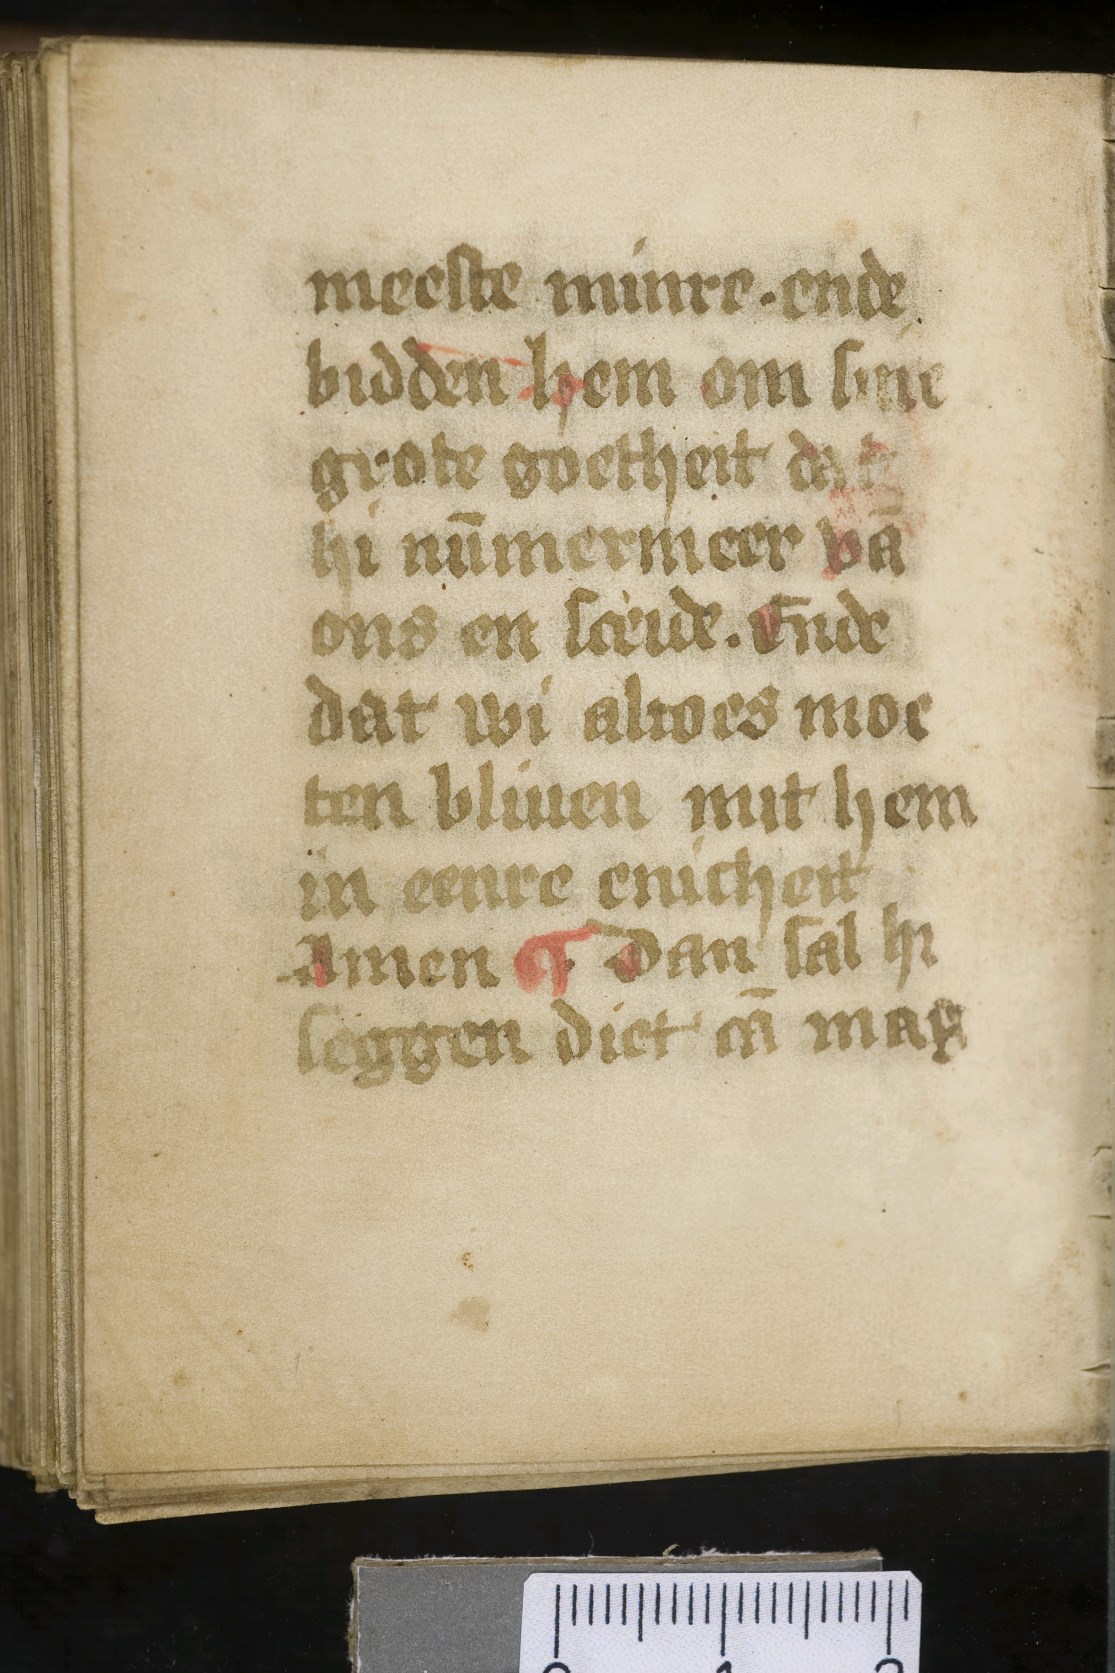 meeste minre. ende
bidden hem om sine
grote goetheit dat
hi nūmermeer vā
ons en sceide. Ende
dat wi altoes moe
ten bliuen mit hem
in eenre enicheit
Amen ¶. Dan sal hi
seggen diet cā
0 1 2